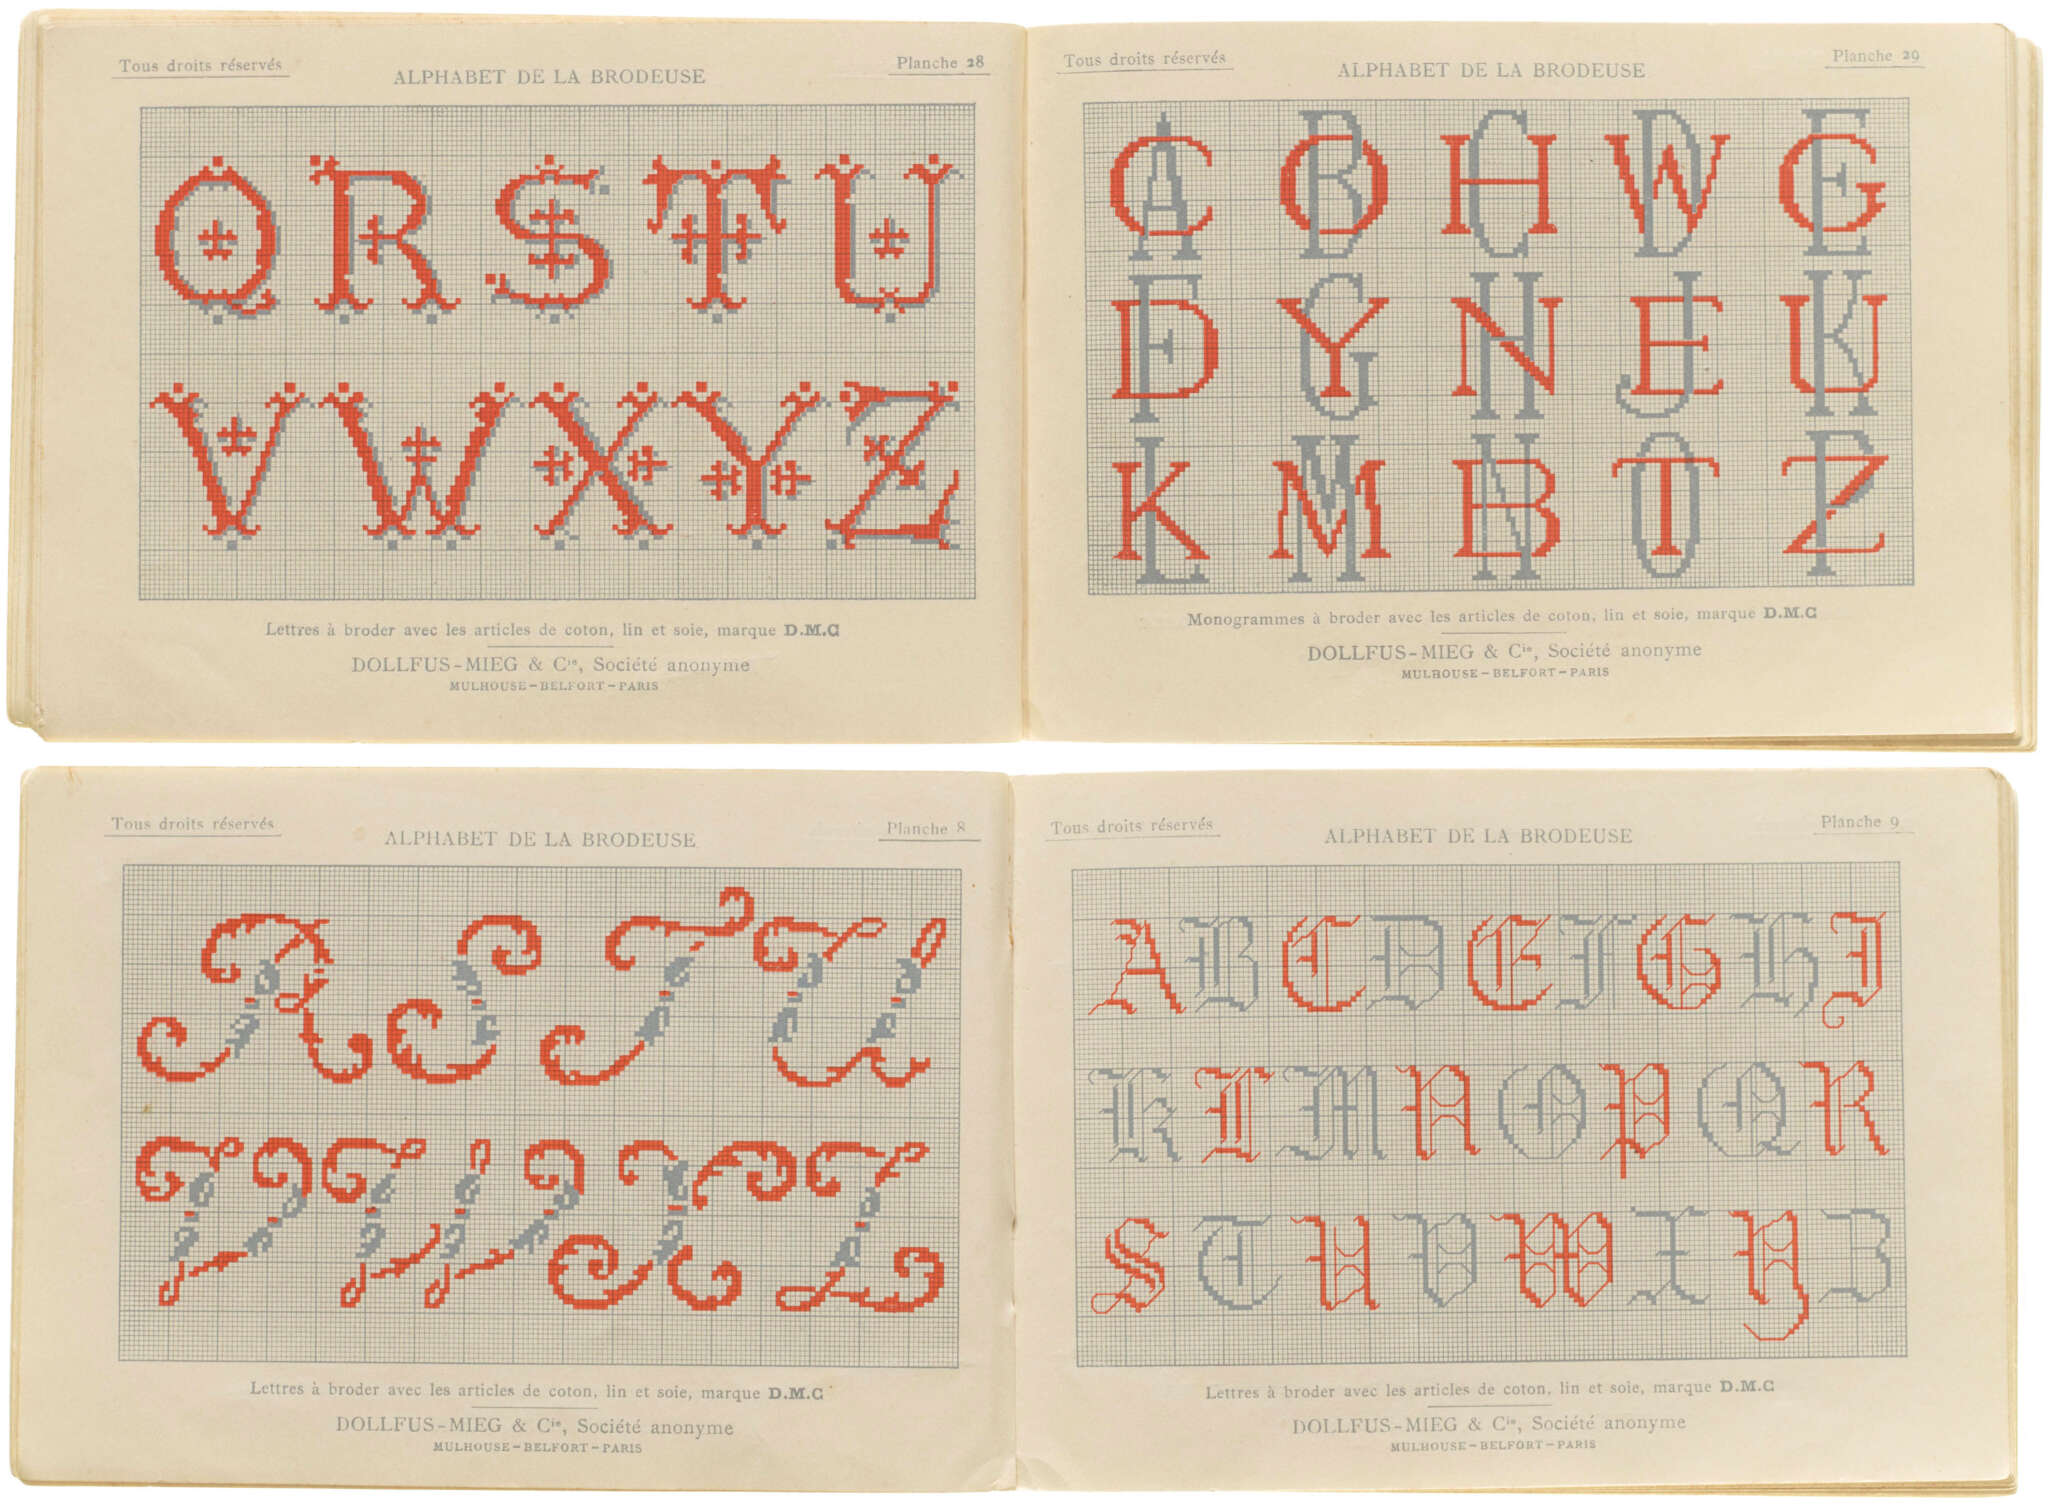 Tous droits réservés
ALPHABET DE LA BRODEUSE
Planche 28
Q R S T U
V W X Y Z
Lettres à broder avec les articles de coton, lin et soie, marque D.M.C
DOLLFUS-MIEG & Cie, Société anonyme
MULHOUSE-BELFORT-PARIS
Tous droits réservés
ALPHABET DE LA BRODEUSE
Planche 29
AC BO CH DW EG
FD GY HN JE KU
LK MM NB OT PZ
Monogrammes à broder avec les articles de coton, lin et soie, marque D.M.C
DOLLFUS-MIEG & Cie, Société anonyme
MULHOUSE-BELFORT-PARIS
Tous droits réservés
ALPHABET DE LA BRODEUSE
Planche 8
R S T U
V W X Z
Lettres à broder avec les articles de coton, lin et soie, marque D.M.C
DOLLFUS-MIEG & Cie, Société anonyme
MULHOUSE-BELFORT-PARIS
Tous droits réservés
ALPHABET DE LA BRODEUSE
Planche 9
A B C D E F G H J
K L M N O P Q R
S T U V W X Y Z
Lettres à broder avec les articles de coton, lin et soie, marque D.M.C
DOLLFUS-MIEG & Cie, Société anonyme
MULHOUSE-BELFORT-PARIS